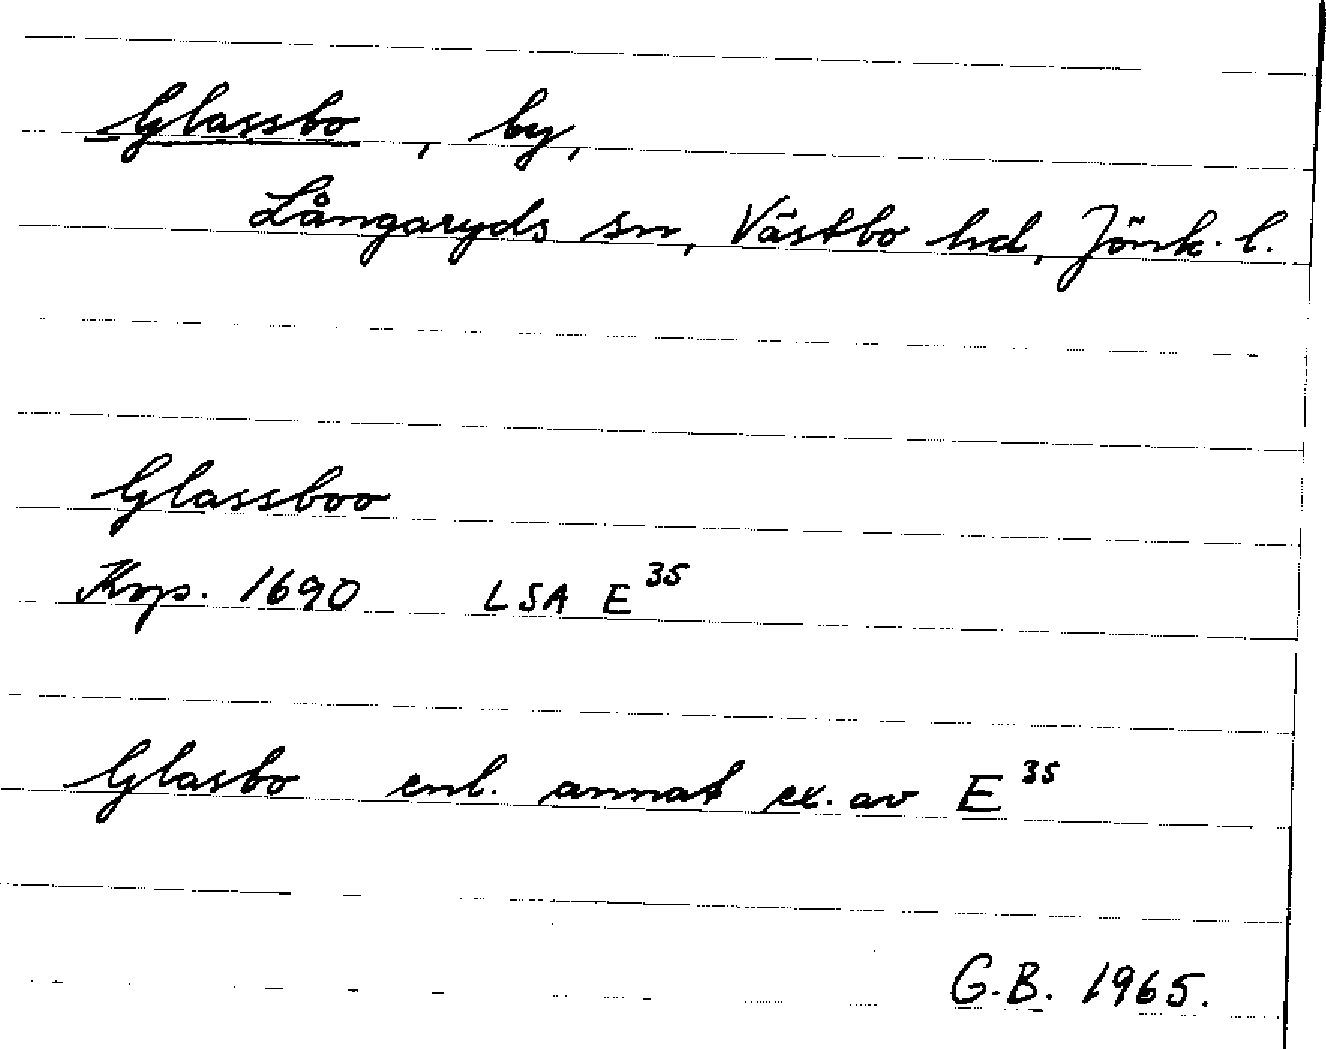 Glassbo, by,
Långaryds sn, Västbo hd, Jönk. l.
Glassboo
Krp. 1690 LSA E 35
Glasbo enl. annat ex. av E 35
G.B. 1965.